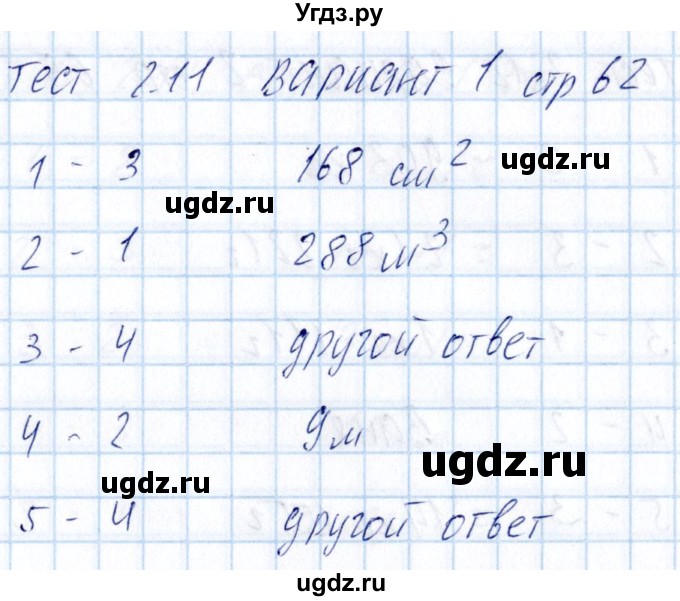 Угдз.ру
Тест 2.11 Вариант 1 стр 62
1 - 3 168 см² ugdz.ru
ugdz.ru
2 - 1 288 м³
3 - 4 другой ответ
4 - 2 9м
ugdz.ru ugdz.ru
5 - 4 другой ответ
ugdz.ru